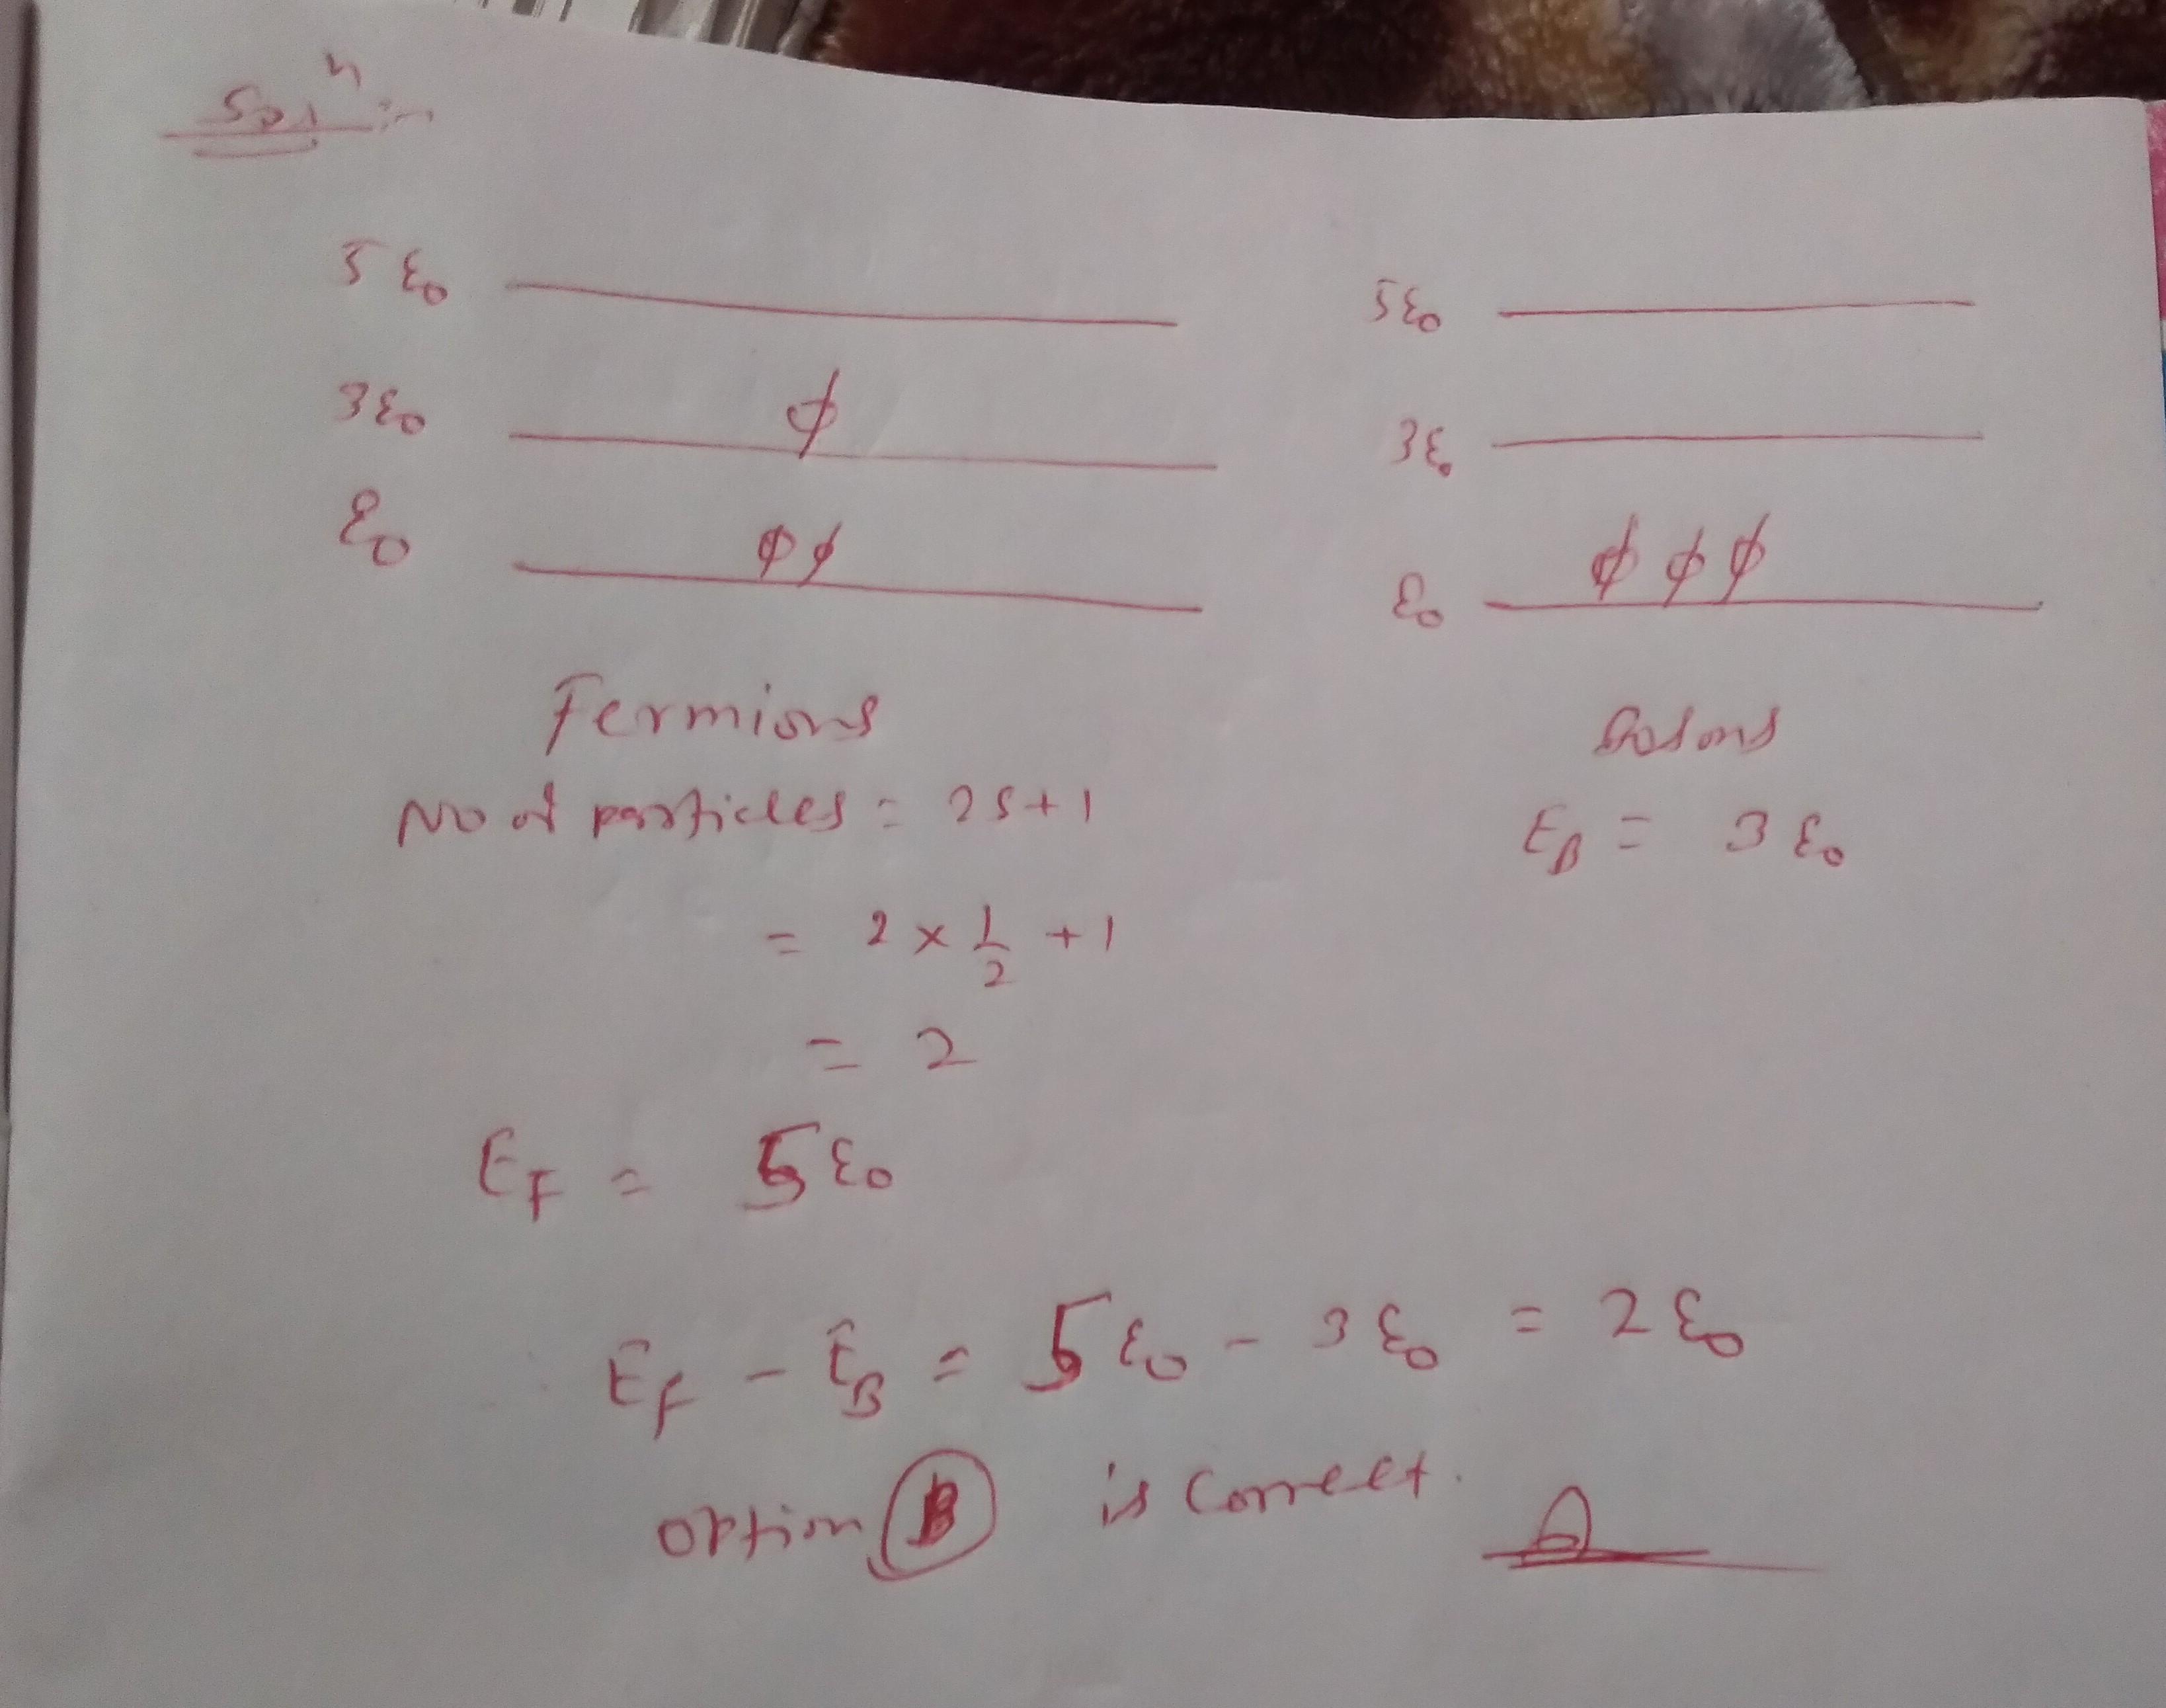 Solⁿ :-
5 ε₀
3 ε₀ ϕ
ε₀ ϕ ϕ
Fermions
No of particles = 2s+1
= 2 × 1/2 + 1
= 2
E_F = 5 ε₀
5ε₀
3ε₀
ε₀ ϕ ϕ ϕ
Bosons
E_B = 3 ε₀
E_F - E_B = 5 ε₀ - 3 ε₀ = 2 ε₀
option B is correct.